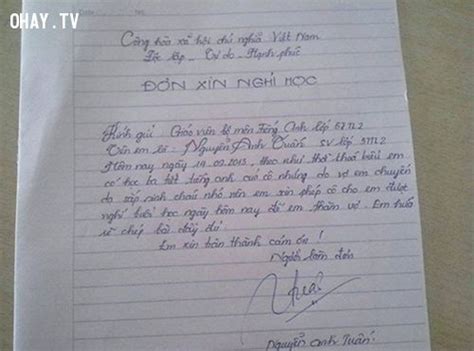 OHAY.TV
Cộng hòa xã hội chủ nghĩa Việt Nam
Độc lập _ Tự do _ Hạnh phúc
ĐƠN XIN NGHỈ HỌC
Kính gửi : Giáo viên bộ môn tiếng Anh lớp 57TL2
Tên em là : Nguyễn Anh Tuấn SV lớp 57TL2
Hôm nay ngày 19.09.2013, theo như thời khoá biểu em
có học ba tiết tiếng anh của cô nhưng do vợ em chuyển
dạ sắp sinh cháu nhỏ nên em xin phép cô cho em được
nghỉ buổi học ngày hôm nay để em thăm vợ. Em hứa
sẽ chép bài đầy đủ.
Em xin chân thành cám ơn !
Người làm đơn
Nguyễn Anh Tuấn